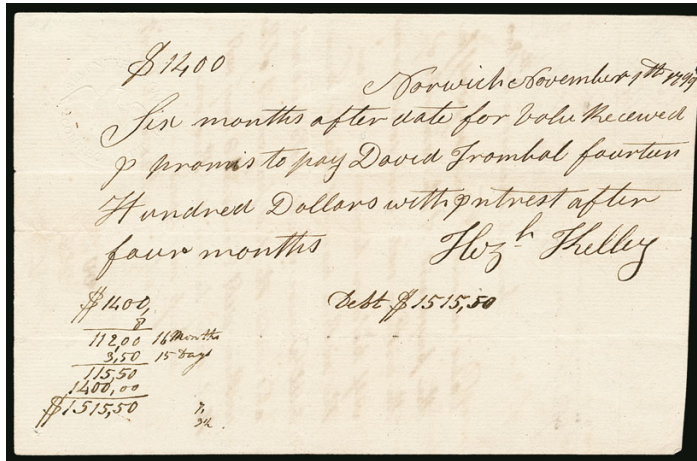 $1400
Norwich November 1th 1799
Six months after date for Valu Received
I promis to pay David Trombal fourten
Hundred Dollars with Intrest after
four months Hezh Kelley
Debt $1515,50
$1400,
8
112,00 16 Months
3,50 15 Days
115,50
1400,00
$1515,50